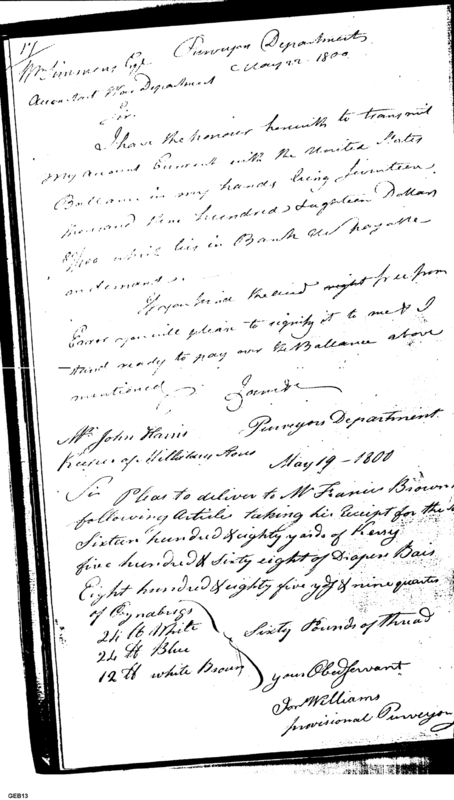 17
Wm Simmons Esqr Purveyors Department
May 22 1800
Accountant War Department
Sir
I have the honour herewith to transmit
my account Current with the United States
Ballance in my hands being Seventeen
thousand Nine hundred & Dollars
/100 which lies in Bank & payable
on demand.
If you find the right free from
Error you will please to signify it to me & I
ready to pay over the Ballance above
mentioned I am &c
Mr John Harris Purveyors Department
Keeper of Millitary Stores
May 19 - 1800
Sir Pleas to deliver to Mr Francis Brown
following Articles taking his Receipt for the
Sixteen hundred & eighty yards of Kersey
five hundred & Sixty eight of Diaper Bais
Eight hundred & eighty five yds & nine quarters
of Oznabrigs
24 lb White
24 lb Blue
12 lb white Brown
Sixty Pounds of thread
your Obed Servant
Jon Williams
provisional Purveyor
GEB13